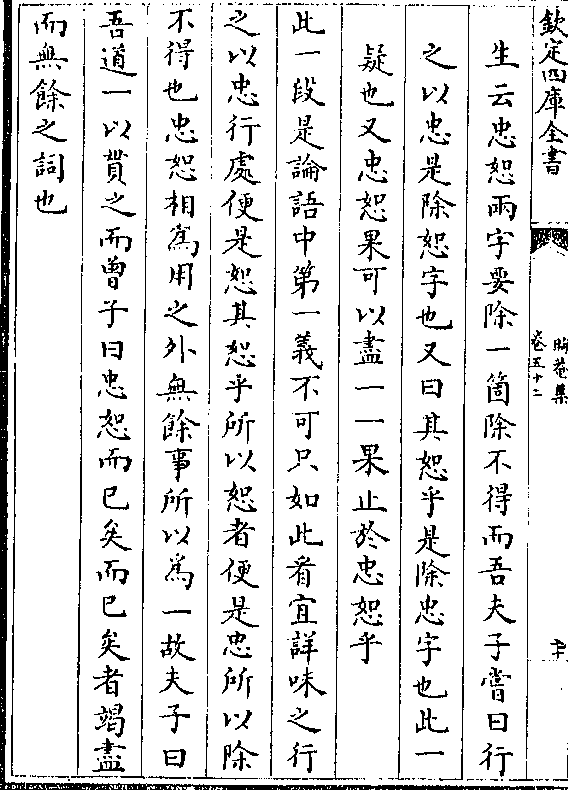 欽定四庫全書
晦菴集
卷五十二
生云忠恕兩字要除一箇除不得而吾夫子嘗曰行
之以忠是除恕字也又曰其恕乎是除忠字也此一
疑也又忠恕果可以盡一一果止於忠恕乎
此一段是論語中第一義不可只如此看宜詳味之行
之以忠行處便是恕其恕乎所以恕者便是忠所以除
不得也忠恕相為用之外無餘事所以為一故夫子曰
吾道一以貫之而曾子曰忠恕而已矣而已矣者竭盡
而無餘之詞也